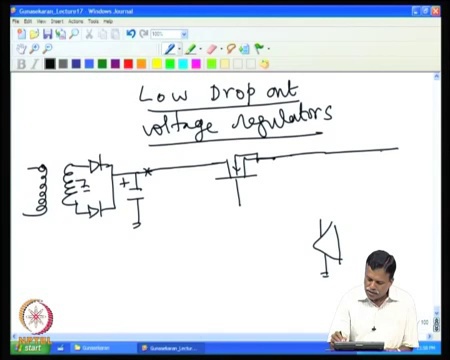 Gunasekaran_Lecture17 - Windows Journal
File Edit View Insert Actions Tools Help
100%
B I
Low Drop out
voltage regulators
+
NPTEL
start
Gunasekaran
Gunasekaran_Lectu...